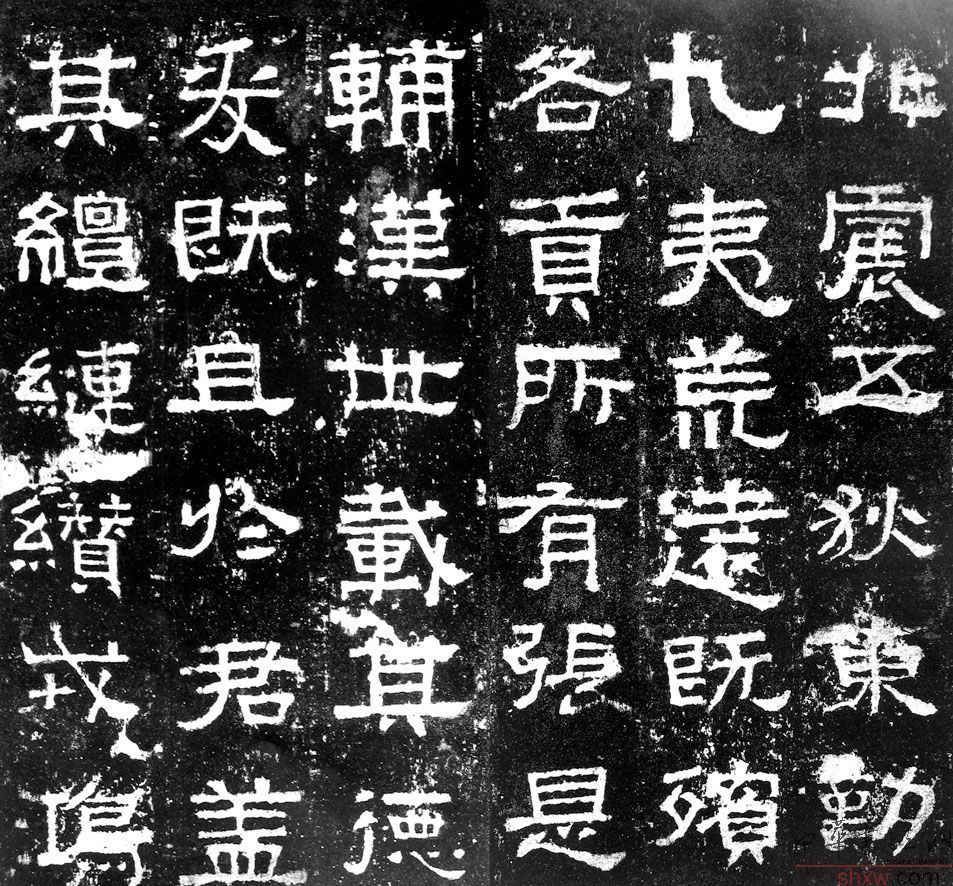 北震五狄東勤
九夷荒遠既殯
各貢所有張是
輔漢世載其德
爰既且於君盖
其繵縺纘戎鴻
shxw.com